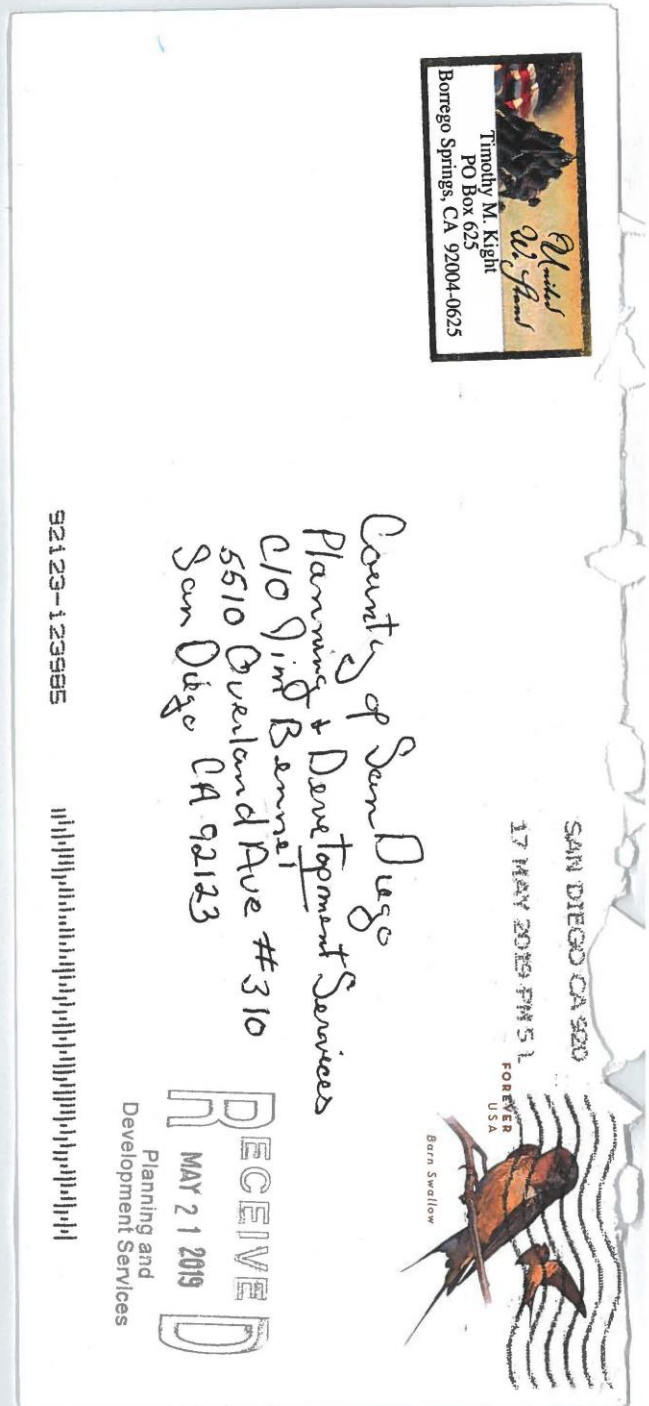 United
We Stand
Timothy M. Kight
PO Box 625
Borrego Springs, CA 92004-0625
SAN DIEGO CA 920
17 MAY 2019 PM 5 L
FOREVER
USA
Barn Swallow
County of San Diego
Planning + Development Services
C/O Jim Bennet
5510 Overland Ave #310
San Diego CA 92123
RECEIVED
MAY 21 2019
Planning and
Development Services
92123-123985